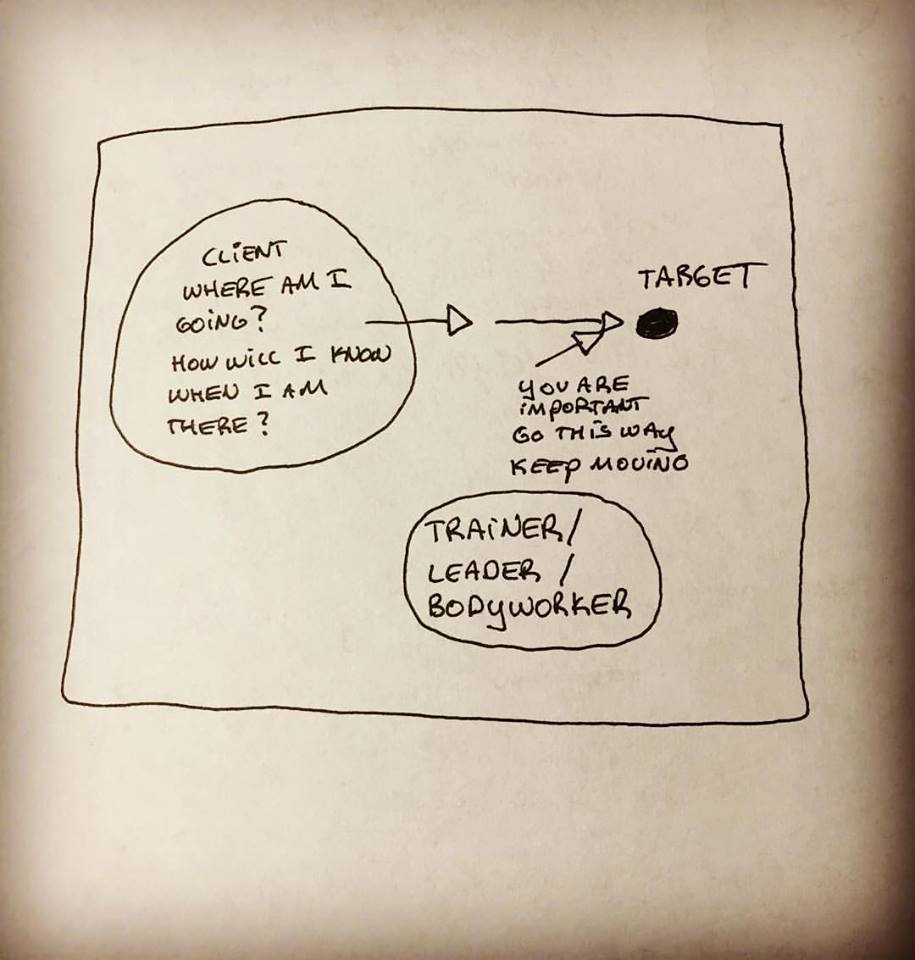 CLIENT
WHERE AM I
GOING?
HOW WILL I KNOW
WHEN I AM
THERE?
TARGET
YOU ARE
IMPORTANT
GO THIS WAY
KEEP MOVING
TRAINER/
LEADER/
BODYWORKER